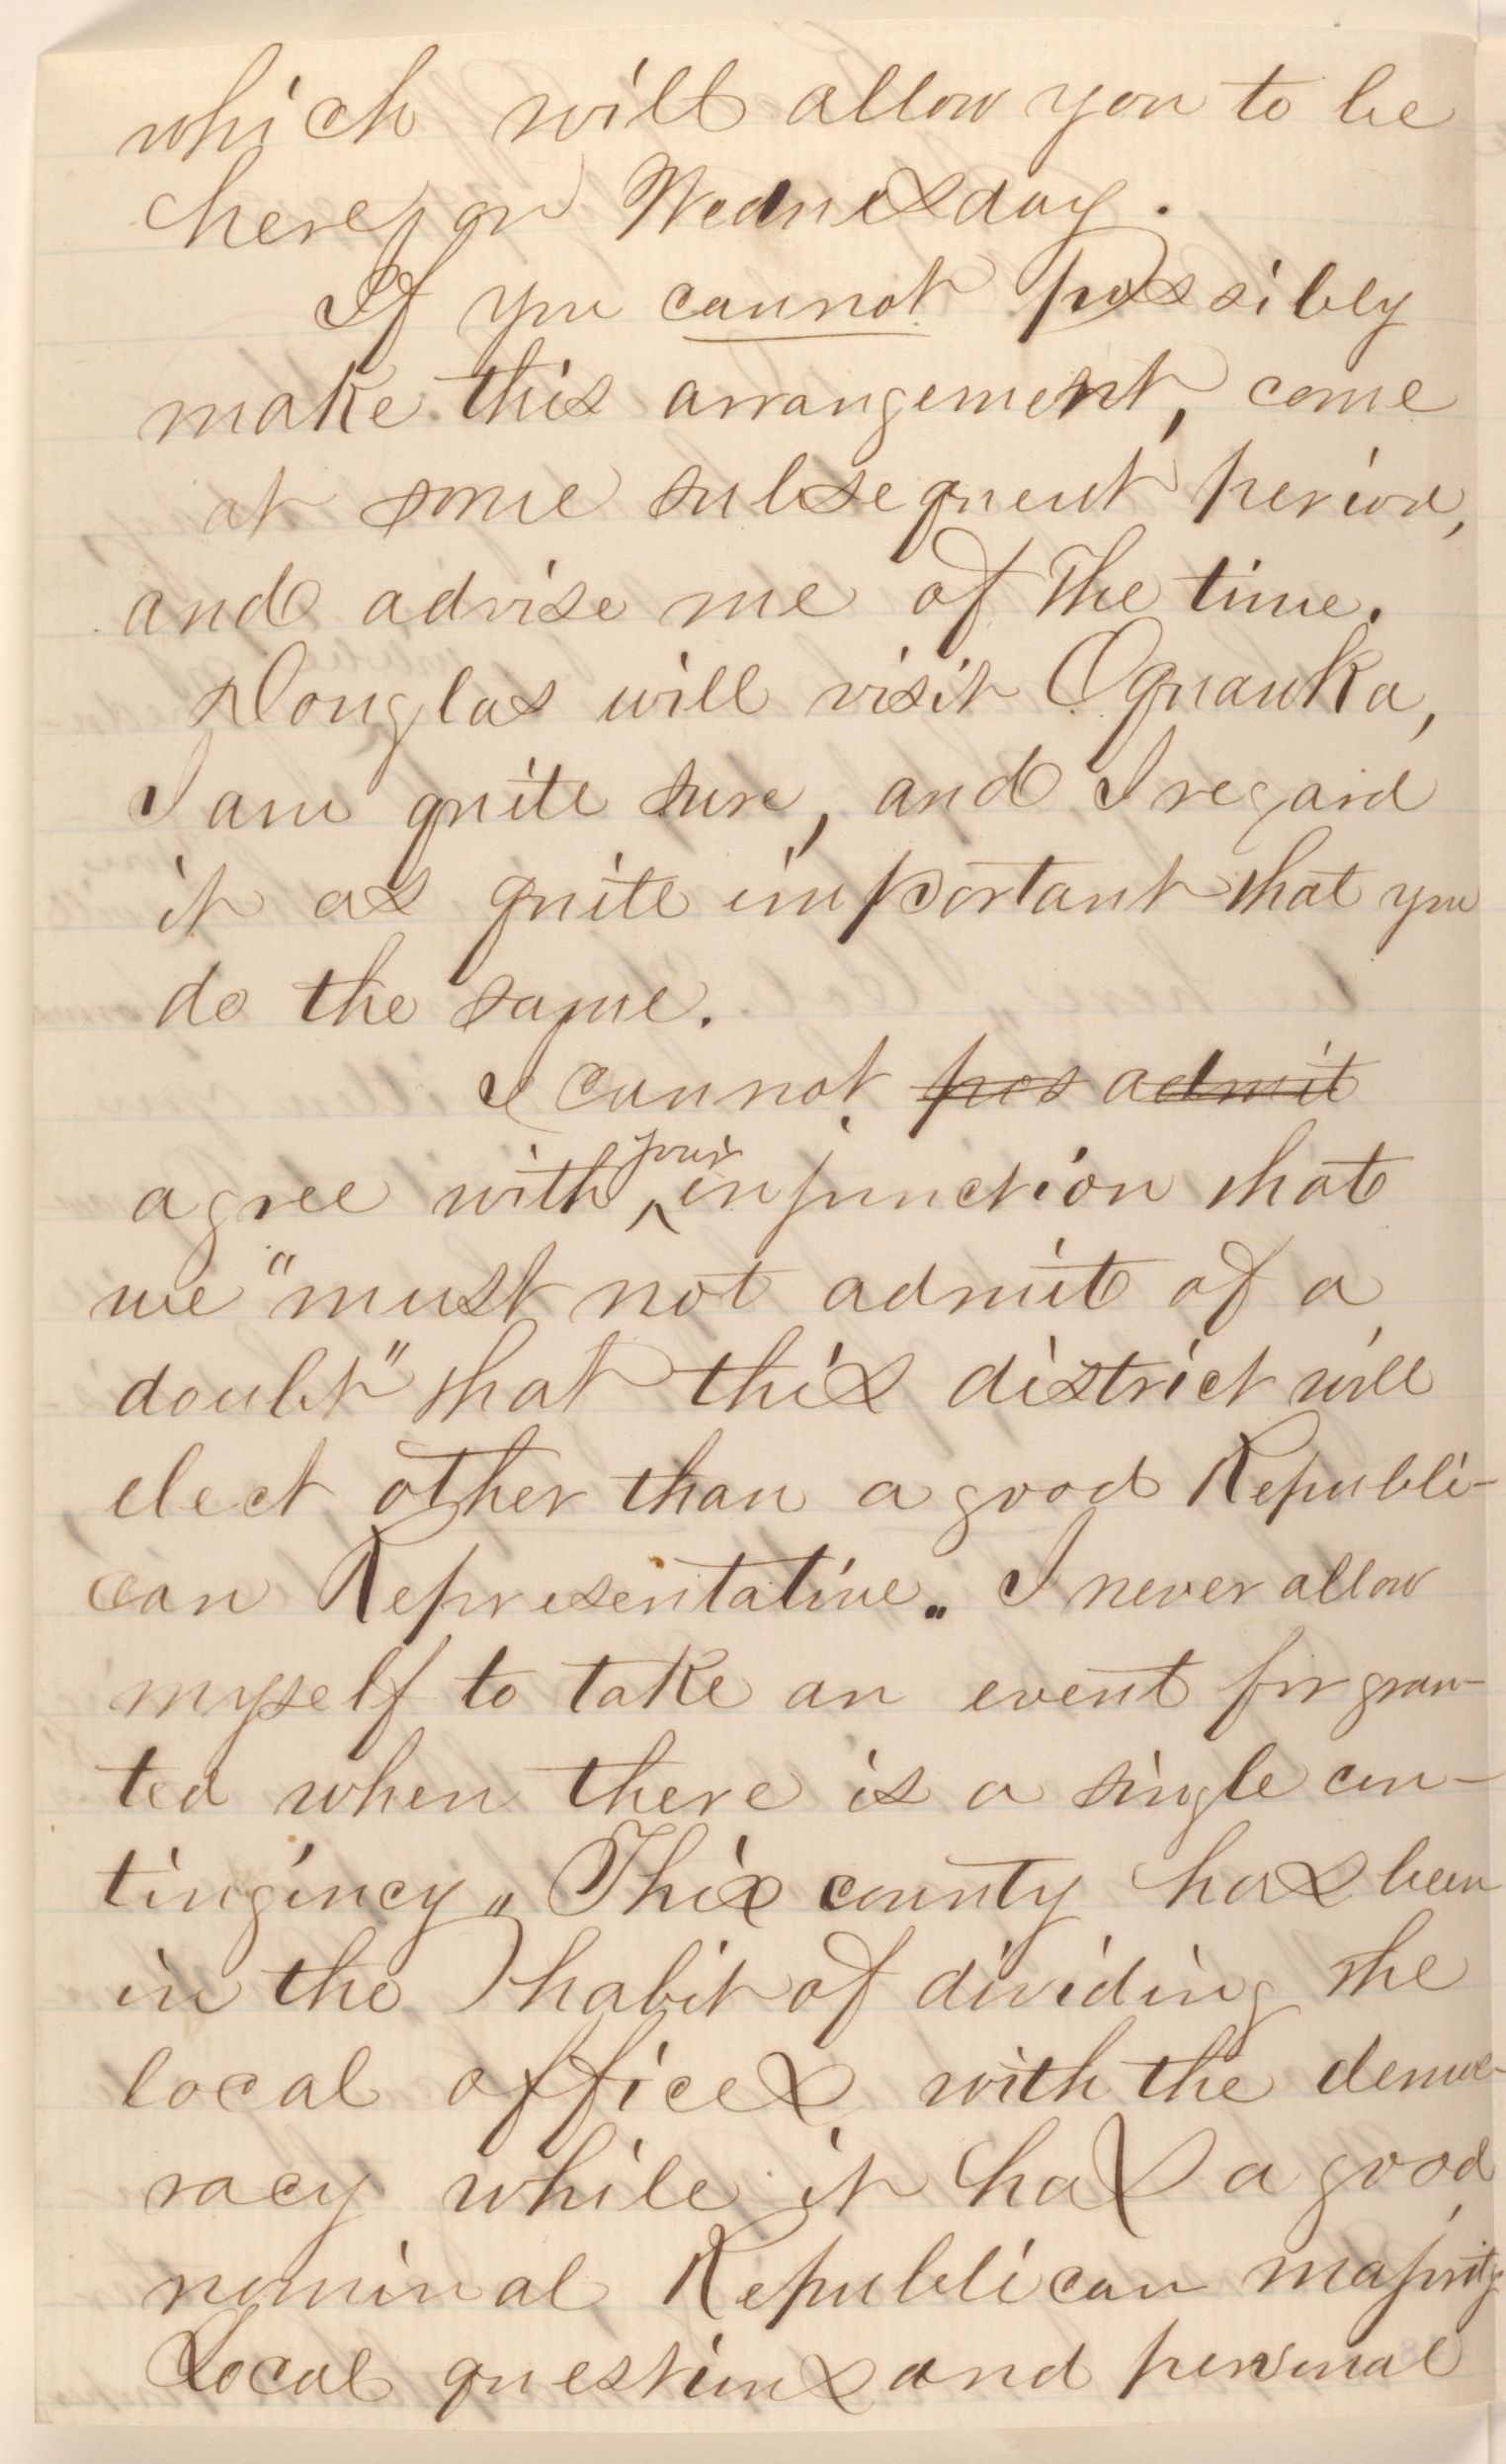 which will allow you to be
here on Wednesday.
If you cannot possibly
make this arrangement, come
at some subsequent period,
and advise me of the time.
Douglas will visit Oquawka,
I am quite sure, and I regard
it as quite important that you
do the same.
I cannot pos admit
agree with your injunction that
we "must not admit of a
doubt" that this district will
elect other than a good Republi-
can Representative. I never allow
myself to take an event for gran-
ted when there is a single con-
tingincy. This county has been
in the habit of dividing the
local offices with the democ-
racy while it has a good
nominal Republican majority.
Local questions and personal